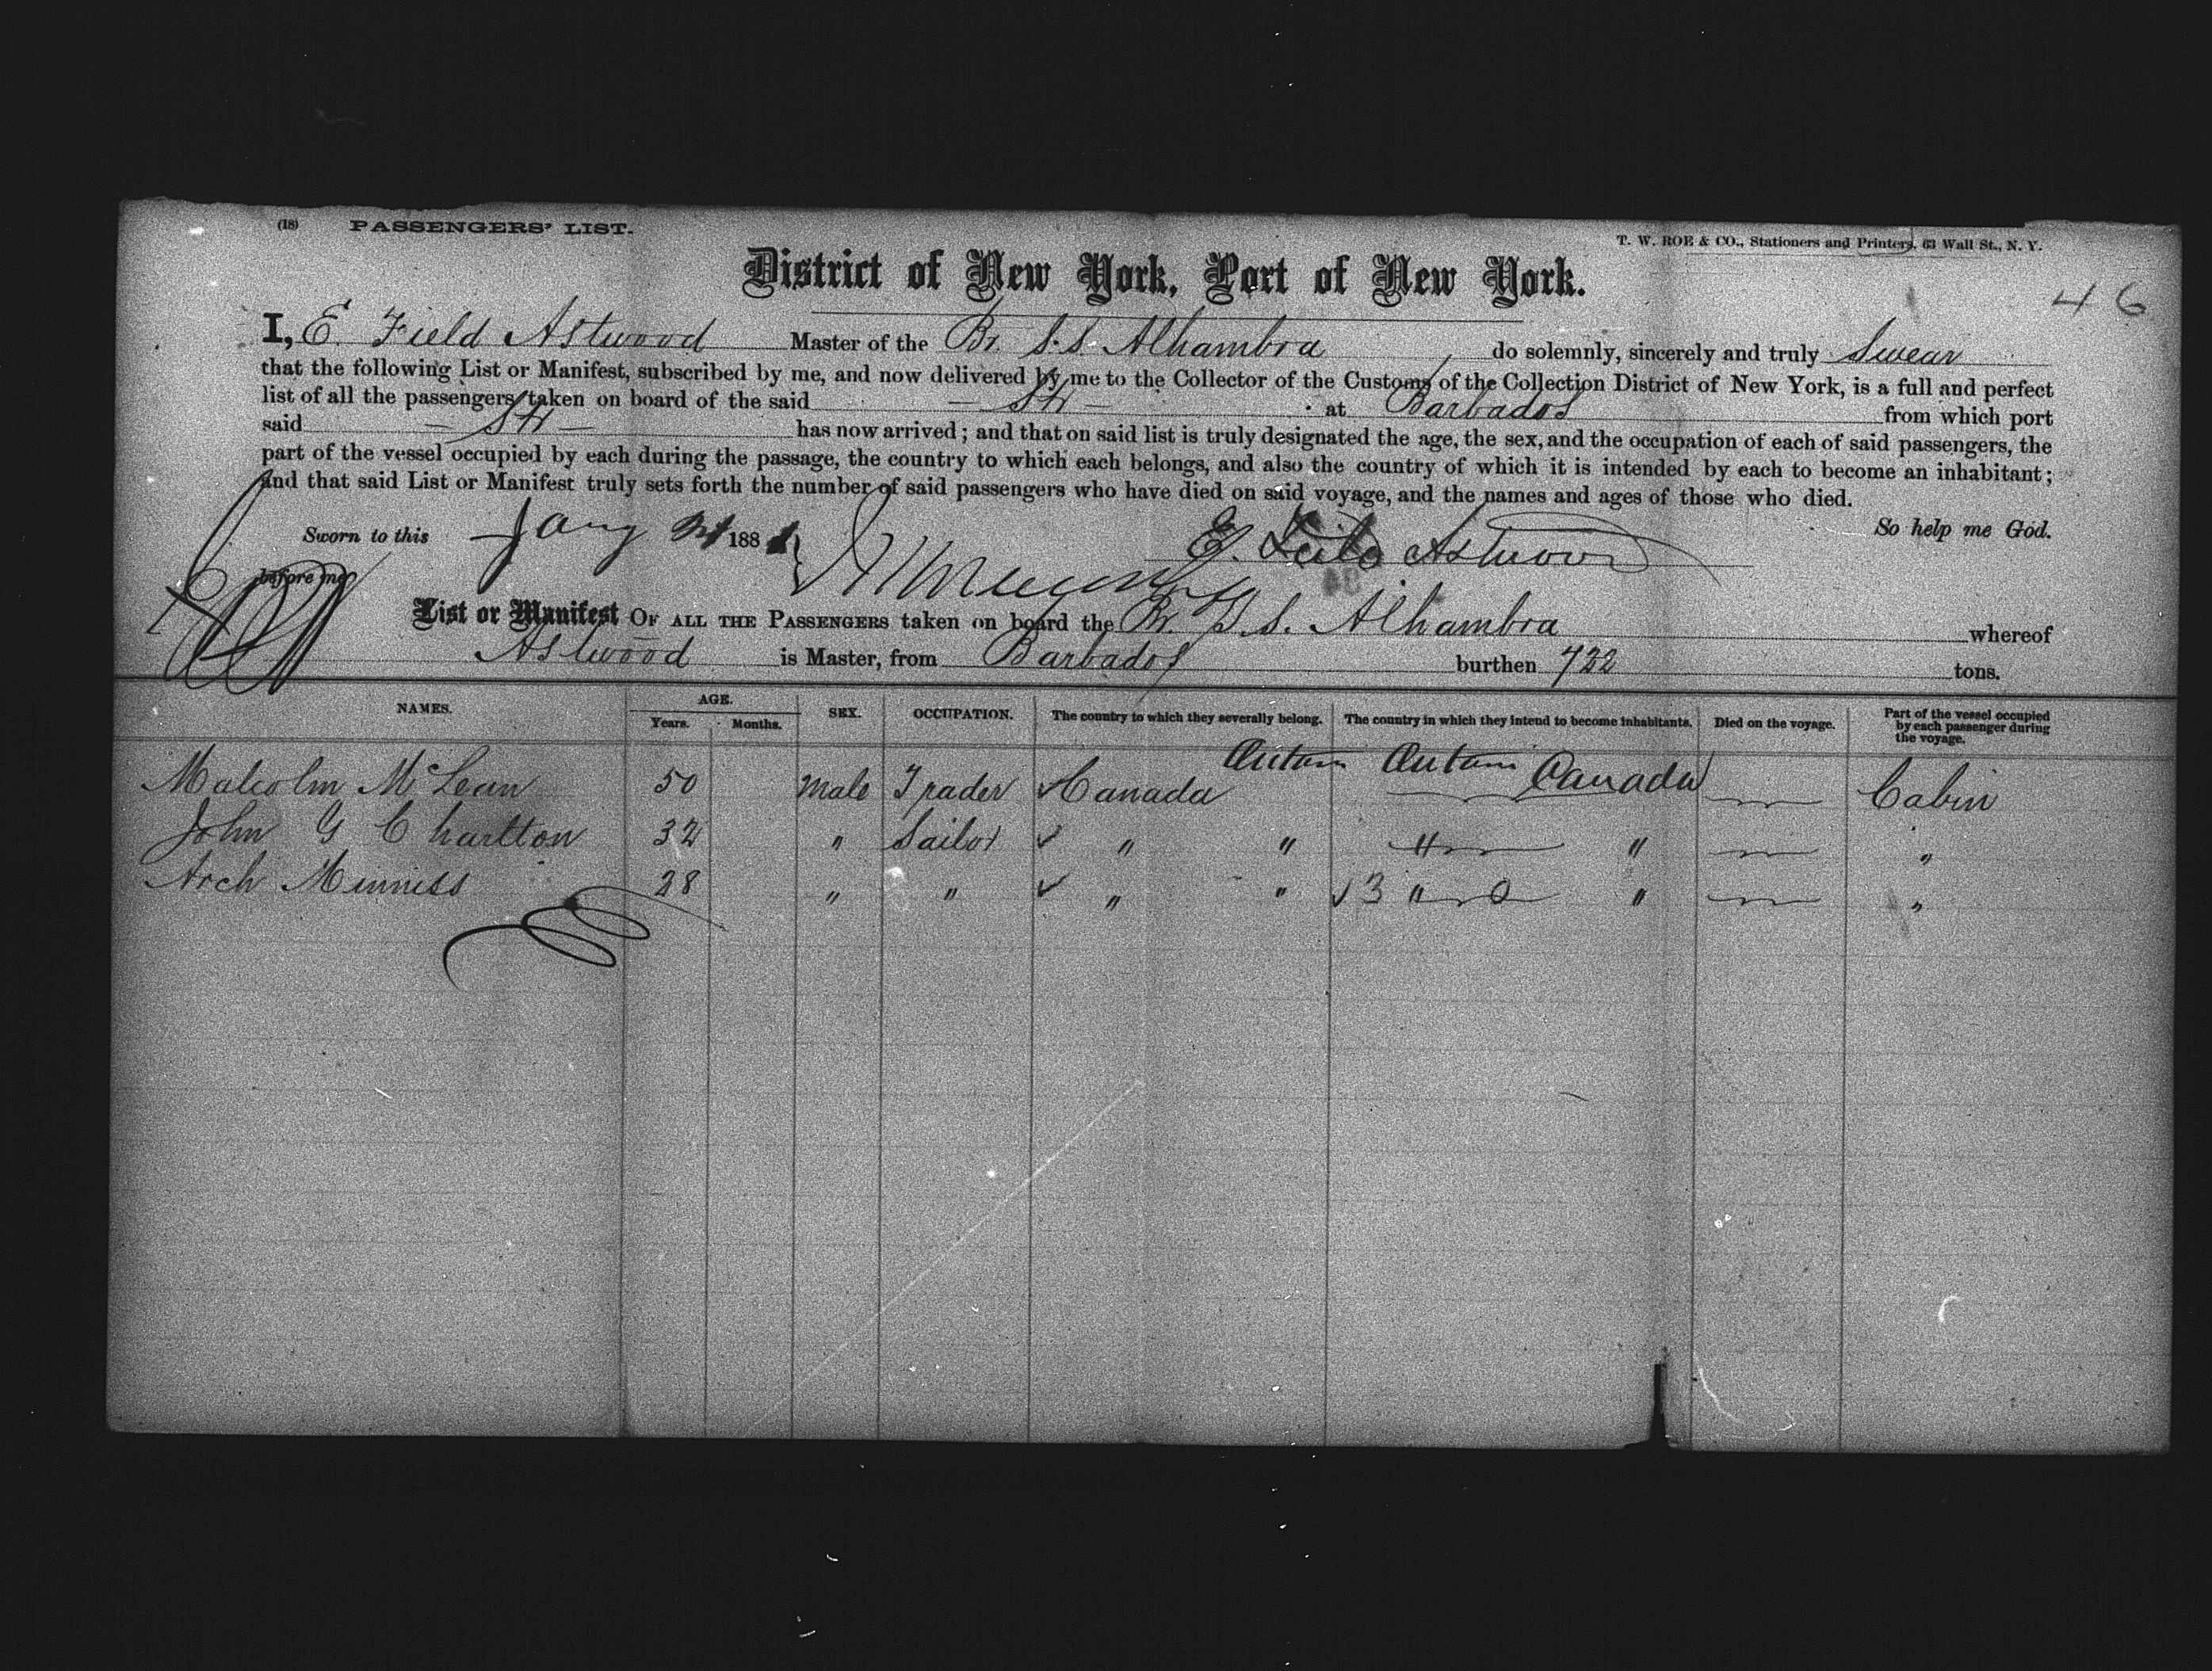 (18) PASSENGERS' LIST.
T. W. ROE & CO., Stationers and Printers, 63 Wall St., N. Y.
District of New York, Port of New York.
46
I, E. Field Astwood Master of the Br. S.S. Alhambra do solemnly, sincerely and truly Swear
that the following List or Manifest, subscribed by me, and now delivered by me to the Collector of the Customs of the Collection District of New York, is a full and perfect
list of all the passengers taken on board of the said - Str - at Barbados from which port
said - Str - has now arrived; and that on said list is truly designated the age, the sex, and the occupation of each of said passengers, the
part of the vessel occupied by each during the passage, the country to which each belongs, and also the country of which it is intended by each to become an inhabitant;
and that said List or Manifest truly sets forth the number of said passengers who have died on said voyage, and the names and ages of those who died.
So help me God.
Sworn to this Jany 188
E. Field Astwood
before me
List or Manifest OF ALL THE PASSENGERS taken on board the Br. S.S. Alhambra whereof
Astwood is Master, from Barbados burthen 722 tons.
NAMES. AGE. Years. Months. SEX. OCCUPATION. The country to which they severally belong. The country in which they intend to become inhabitants. Died on the voyage. Part of the vessel occupied by each passenger during the voyage.
Malcolm McLean 50 Male Trader Canada Canada — Cabin
John G Charlton 32 " Sailor " " " " — "
Arch Minniss 28 " " " " 3 " " — "